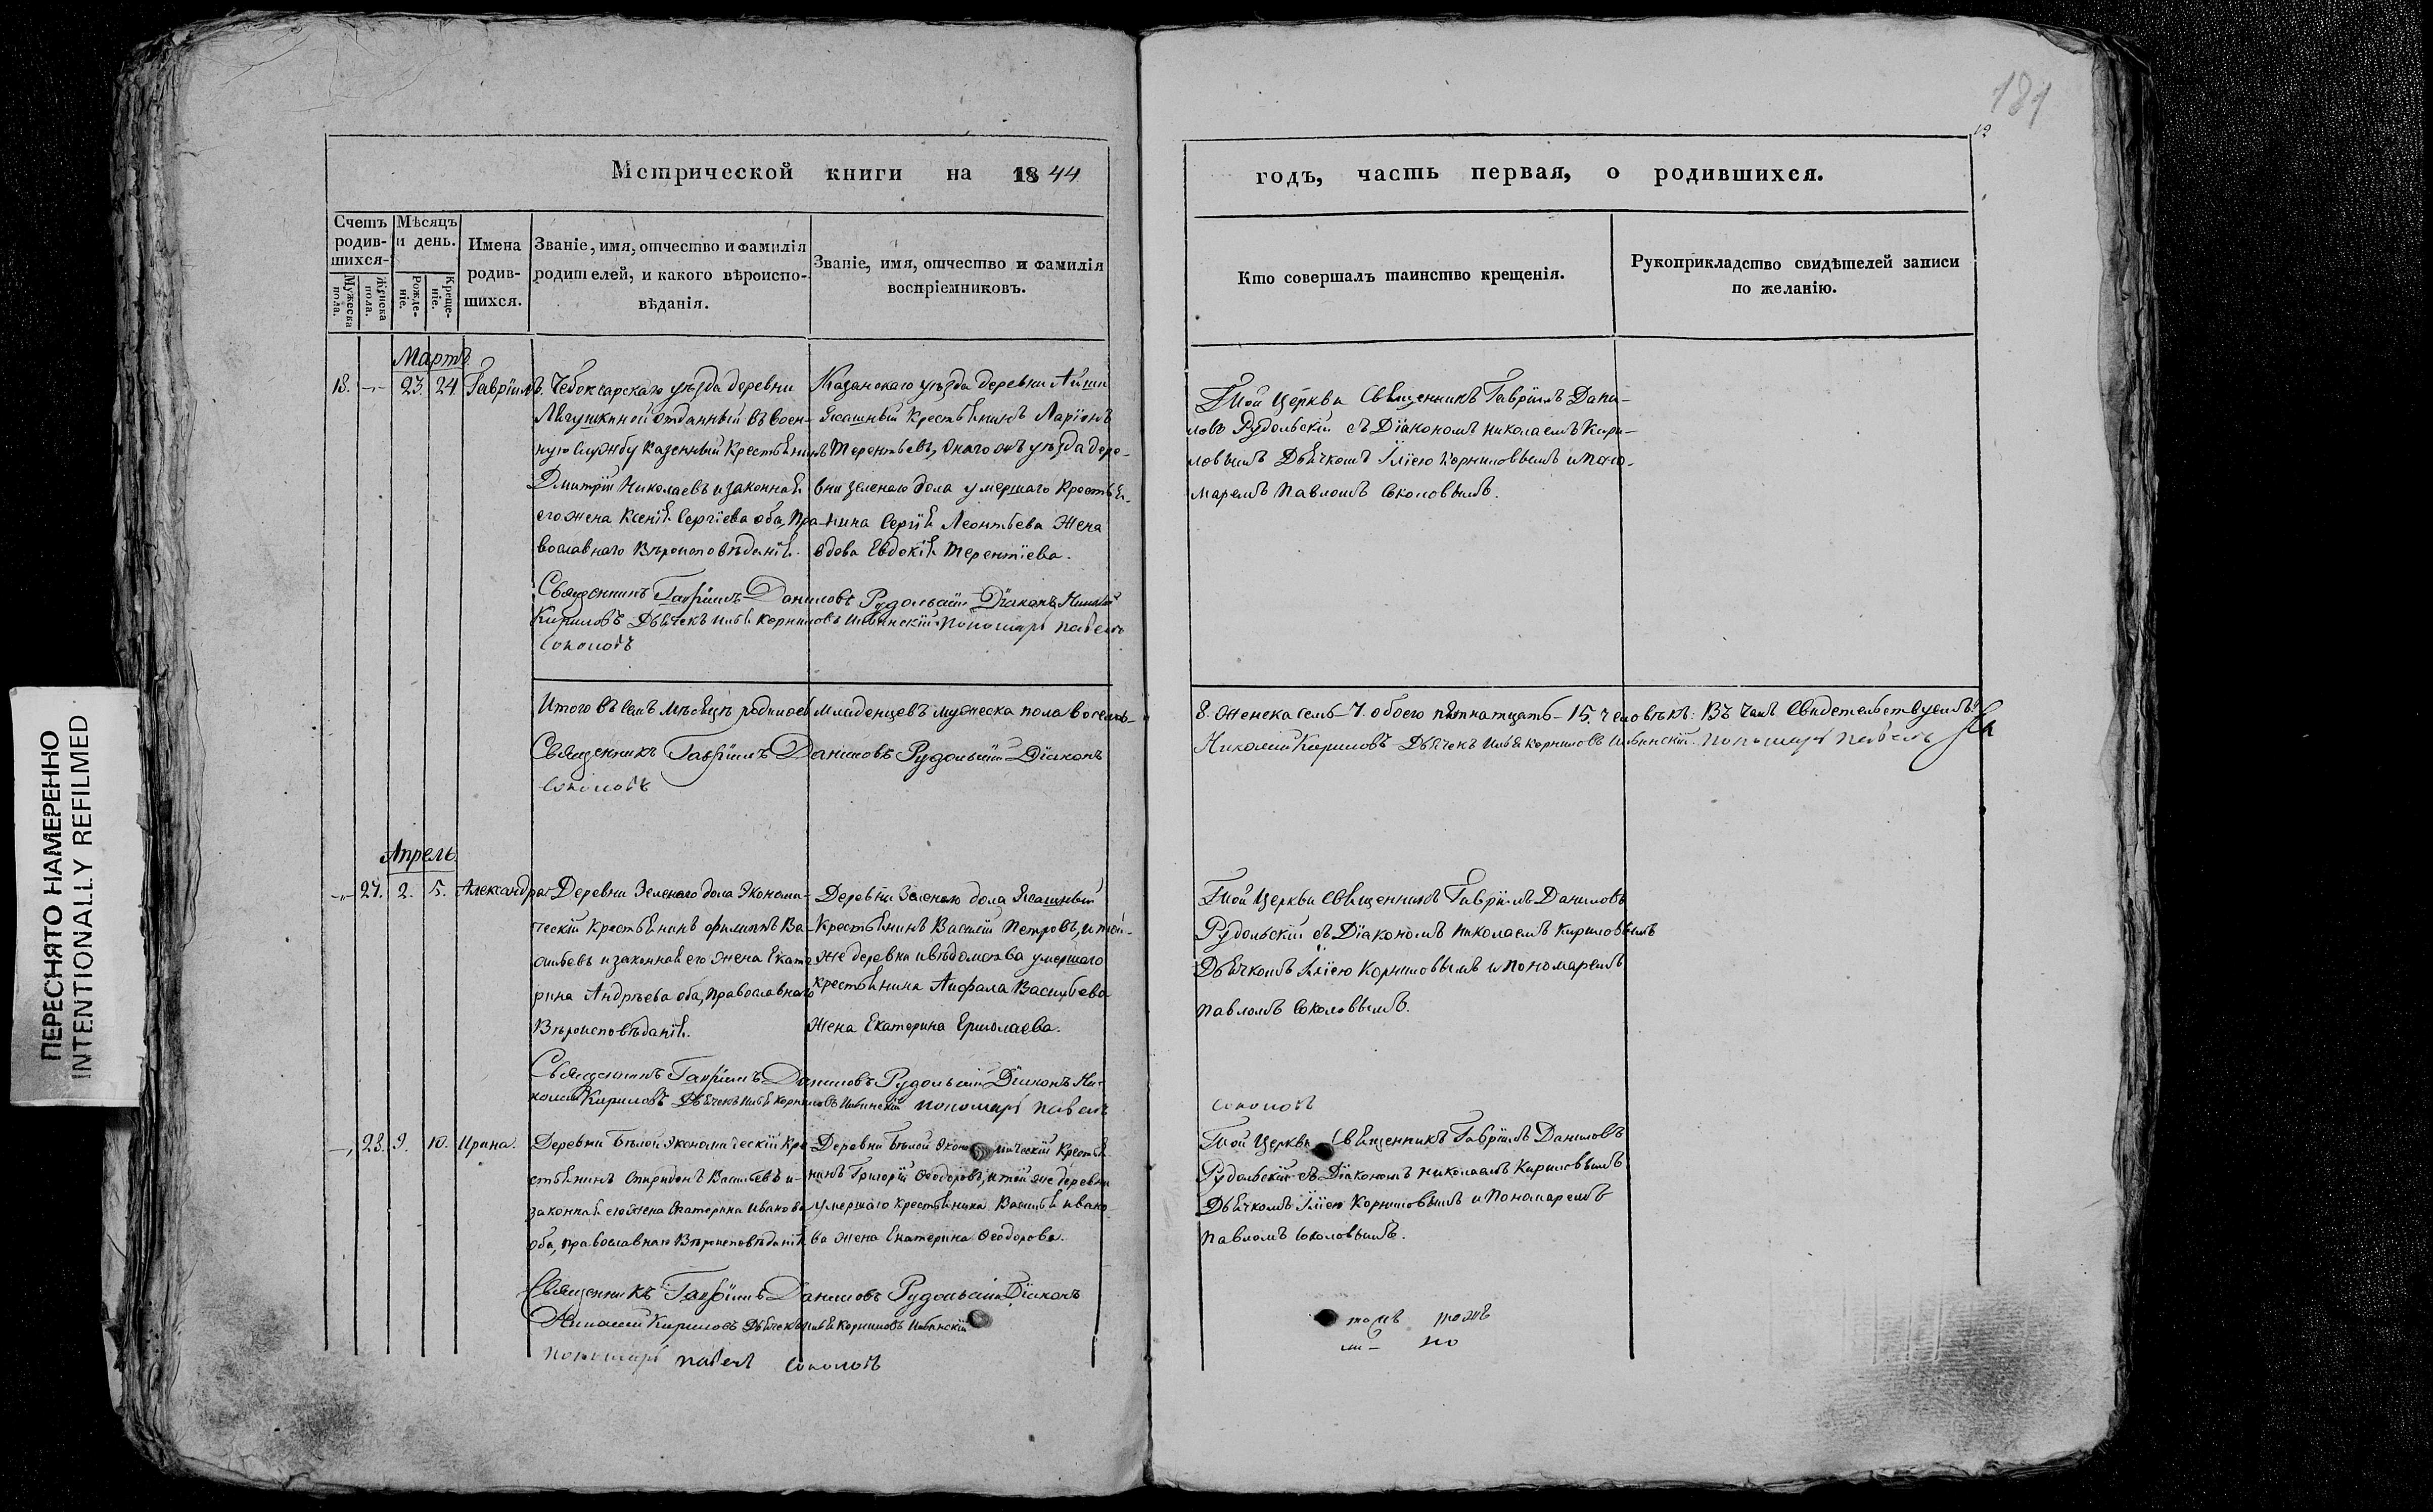 181
12
Метрической книги на 1844
годъ, часть первая, о родившихся.
Счетъ родив-шихся.
Мѣсяцъ и день.
Мужеска пола.
Женска пола.
Рожде-ніе.
Креще-ніе.
Имена родив-шихся.
Званіе, имя, отчество и фамилія
родителей, и какого вѣроиспо-
вѣданія.
Званіе, имя, отчество и фамилія
воспріемниковъ.
Кто совершалъ таинство крещенія.
Рукоприкладство свидѣтелей записи
по желанію.
Мартъ
18. 23. 24 Гавріилъ.
Чебоксарскаго уѣзда деревни
отданный въ воен-
ную службу казенный крестьянинъ
Дмитрій Николаевъ и законная
его жена Ксенія Сергіева оба, пра-
вославнаго вѣроисповѣданія.
Казанскаго уѣзда деревни Айши
Ясашный крестьянинъ Ларіонъ
Терентьевъ, онаго жъ уѣзда дере-
вни зеленаго дола умершаго крестья-
нина Сергія Леонтьева жена
вдова Евдокія Терентіева.
Той церкви Священникъ Гавріилъ Дани-
ловъ Рудольскій съ Діакономъ Николаемъ Кири-
ловымъ Дьячкомъ Иліею Корниловымъ и Поно-
маремъ Павломъ Соколовымъ.
Священникъ Гавріилъ Даниловъ Рудольскій Діаконъ Николай
Кириловъ Дьячекъ Илья Корниловъ Ильинскій Пономарь Павелъ
Соколовъ
Итого въ семъ мѣсяцѣ родилось младенцевъ мужеска пола восемь-
8. женска семь-7. обоего пятнатцать-15. человѣкъ: Въ чемъ свидетельствуемъ:
Священникъ Гавріилъ Даниловъ Рудольскій Діаконъ
Николай Кириловъ Дьячекъ Илья Корниловъ Ильинскій. Пономарь Павелъ
Соколовъ
Апрель.
27. 2. 5. Александра
Деревни Зеленаго дола Экономи-
ческій крестьянинъ Филиппъ Ва-
сильевъ и законная его жена Екате-
рина Андрѣева оба, православнаго
Вѣроисповѣданія.
Деревни Зеленаго дола Ясашный
крестьянинъ Василій Петровъ, и той-
же деревни и вѣдомства умершаго
крестьянина Васильева
жена Екатерина Ермолаева.
Той церкви священникъ Гавріилъ Даниловъ
Рудольскій съ Діакономъ Николаемъ Кириловымъ
Дьячкомъ Иліею Корниловымъ и Пономаремъ
Павломъ Соколовымъ.
Священникъ Гавріилъ Даниловъ Рудольскій Діаконъ Ни-
колай Кириловъ Дьячекъ Илья Корниловъ Ильинскій Пономарь Павелъ
Соколовъ
28. 9. 10. Ирина.
Деревни Бѣлой экономическій кре-
стьянинъ Спиридонъ Васильевъ и
законная его жена Екатерина Иванова
оба, православнаго Вѣроисповѣданія
Деревни Бѣлой экономическій крестья
нинъ Григорій Ѳеодоровъ, и той же деревни
умершаго крестьянина Василья Ивано
ва жена Екатерина Ѳеодорова.
Той церкви Священникъ Гавріилъ Даниловъ
Рудольскій съ Діакономъ Николаемъ Кириловымъ
Дьячкомъ Иліею Корниловымъ и Пономаремъ
Павломъ Соколовымъ.
Священникъ Гавріилъ Даниловъ Рудольскій Діаконъ
Николай Кириловъ Дьячекъ Илья Корниловъ Ильинскій
Пономарь Павелъ Соколовъ
ПЕРЕСНЯТО НАМЕРЕННО
INTENTIONALLY REFILMED